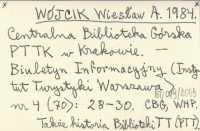 WÓJCIK Wiesław A. 1984.
Centralna Biblioteka Górska
PTTK w Krakowie. —
Biuletyn Informacyjny (Inst
tut Turystyki Warszawa
nr 4 (70): 28-30. CBG, WHP.
Także historia Biblioteki TT (PTT)